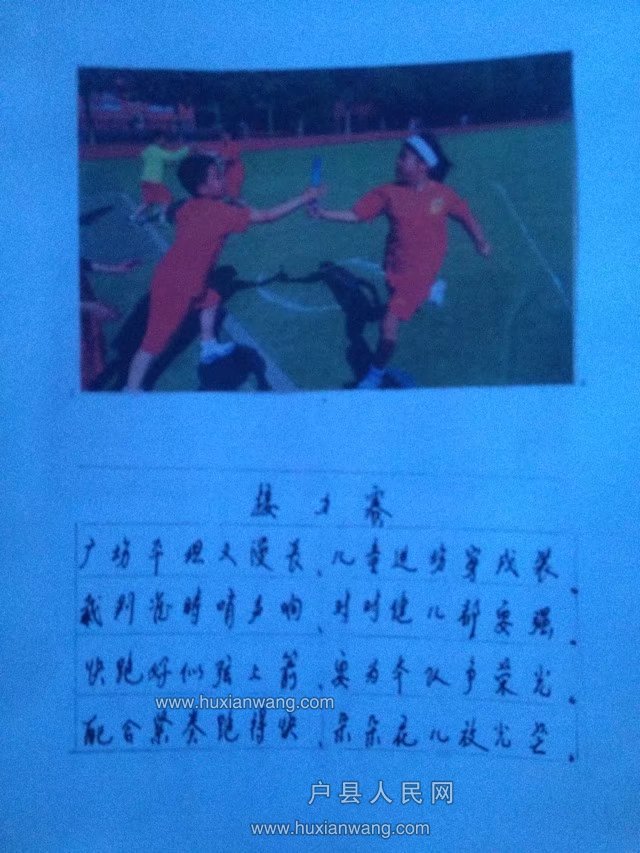 接力赛
广场平坦又漫长、儿童进场穿戎装。
裁判准时哨声响、对对健儿都要强。
快跑好似弦上箭、要为本队争荣光。
www.huxianwang.com
配合紧奏跑得快、朵朵花儿放光
户县人民网
www.huxianwang.com